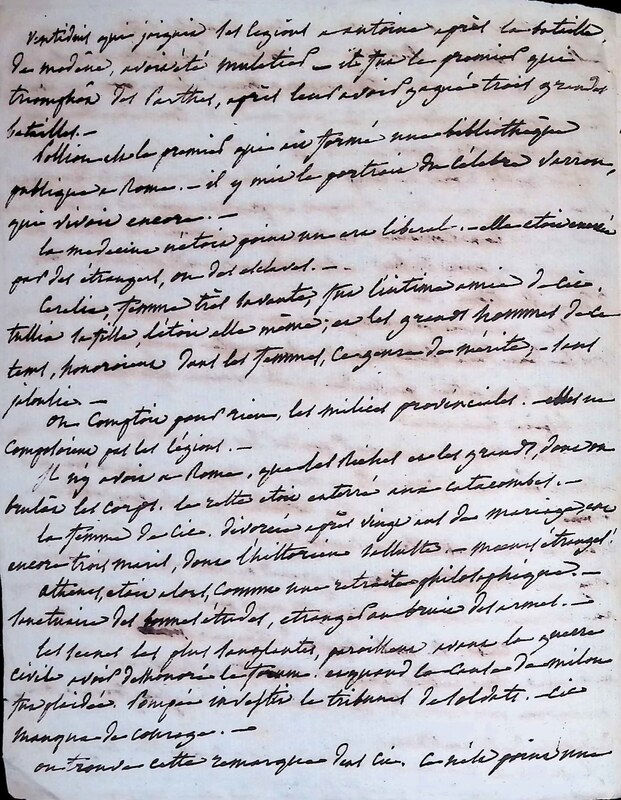 Ventidius qui joignit ses légions a antoine après la bataille
de modène, avoit été muletier — il fut le premier qui
triompha des Parthes, après leur avoir gagné trois grandes
batailles. —
Pollion est le premier qui ait formé une bibliothèque
publique a Rome. — il y mit le portrait du célèbre Varron,
qui vivoit encore. —
la medecine n'étoit point un art liberal. — elle étoit exercée
par des étrangers, ou des esclaves. —
Cerelie, femme très savante, fut l'intime amie de Cic.
tullia sa fille, l'étoit elle même; et les grands hommes de ce
tems, honoroient dans les femmes, ce genre de merite, — sans
jalousie —
on Comptoit pour rien, les milices provinciales. — elles ne
composoient pas les légions. —
Il n'y avoit a Rome, que les Riches et les grands, dont on
brulât les corps. le reste étoit enterré aux catacombes. —
la femme de Cic. divorcée après vingt ans de mariage, eut
encore trois maris, dont l'historien Salluste. — moeurs étranges!
athenes, étoit alors, comme une retraite philosophique. —
sanctuaire des bonnes études, etranger au bruit des armes. —
les scènes les plus sanglantes, paroissent avant la guerre
civile avoir deshonoré le forum. et quand la cause de milon
fut plaidée. Pompée investit le tribunal de soldats. — Cic
manqua de courage. —
on trouve cette remarque dans Cic. Ce n'est point une